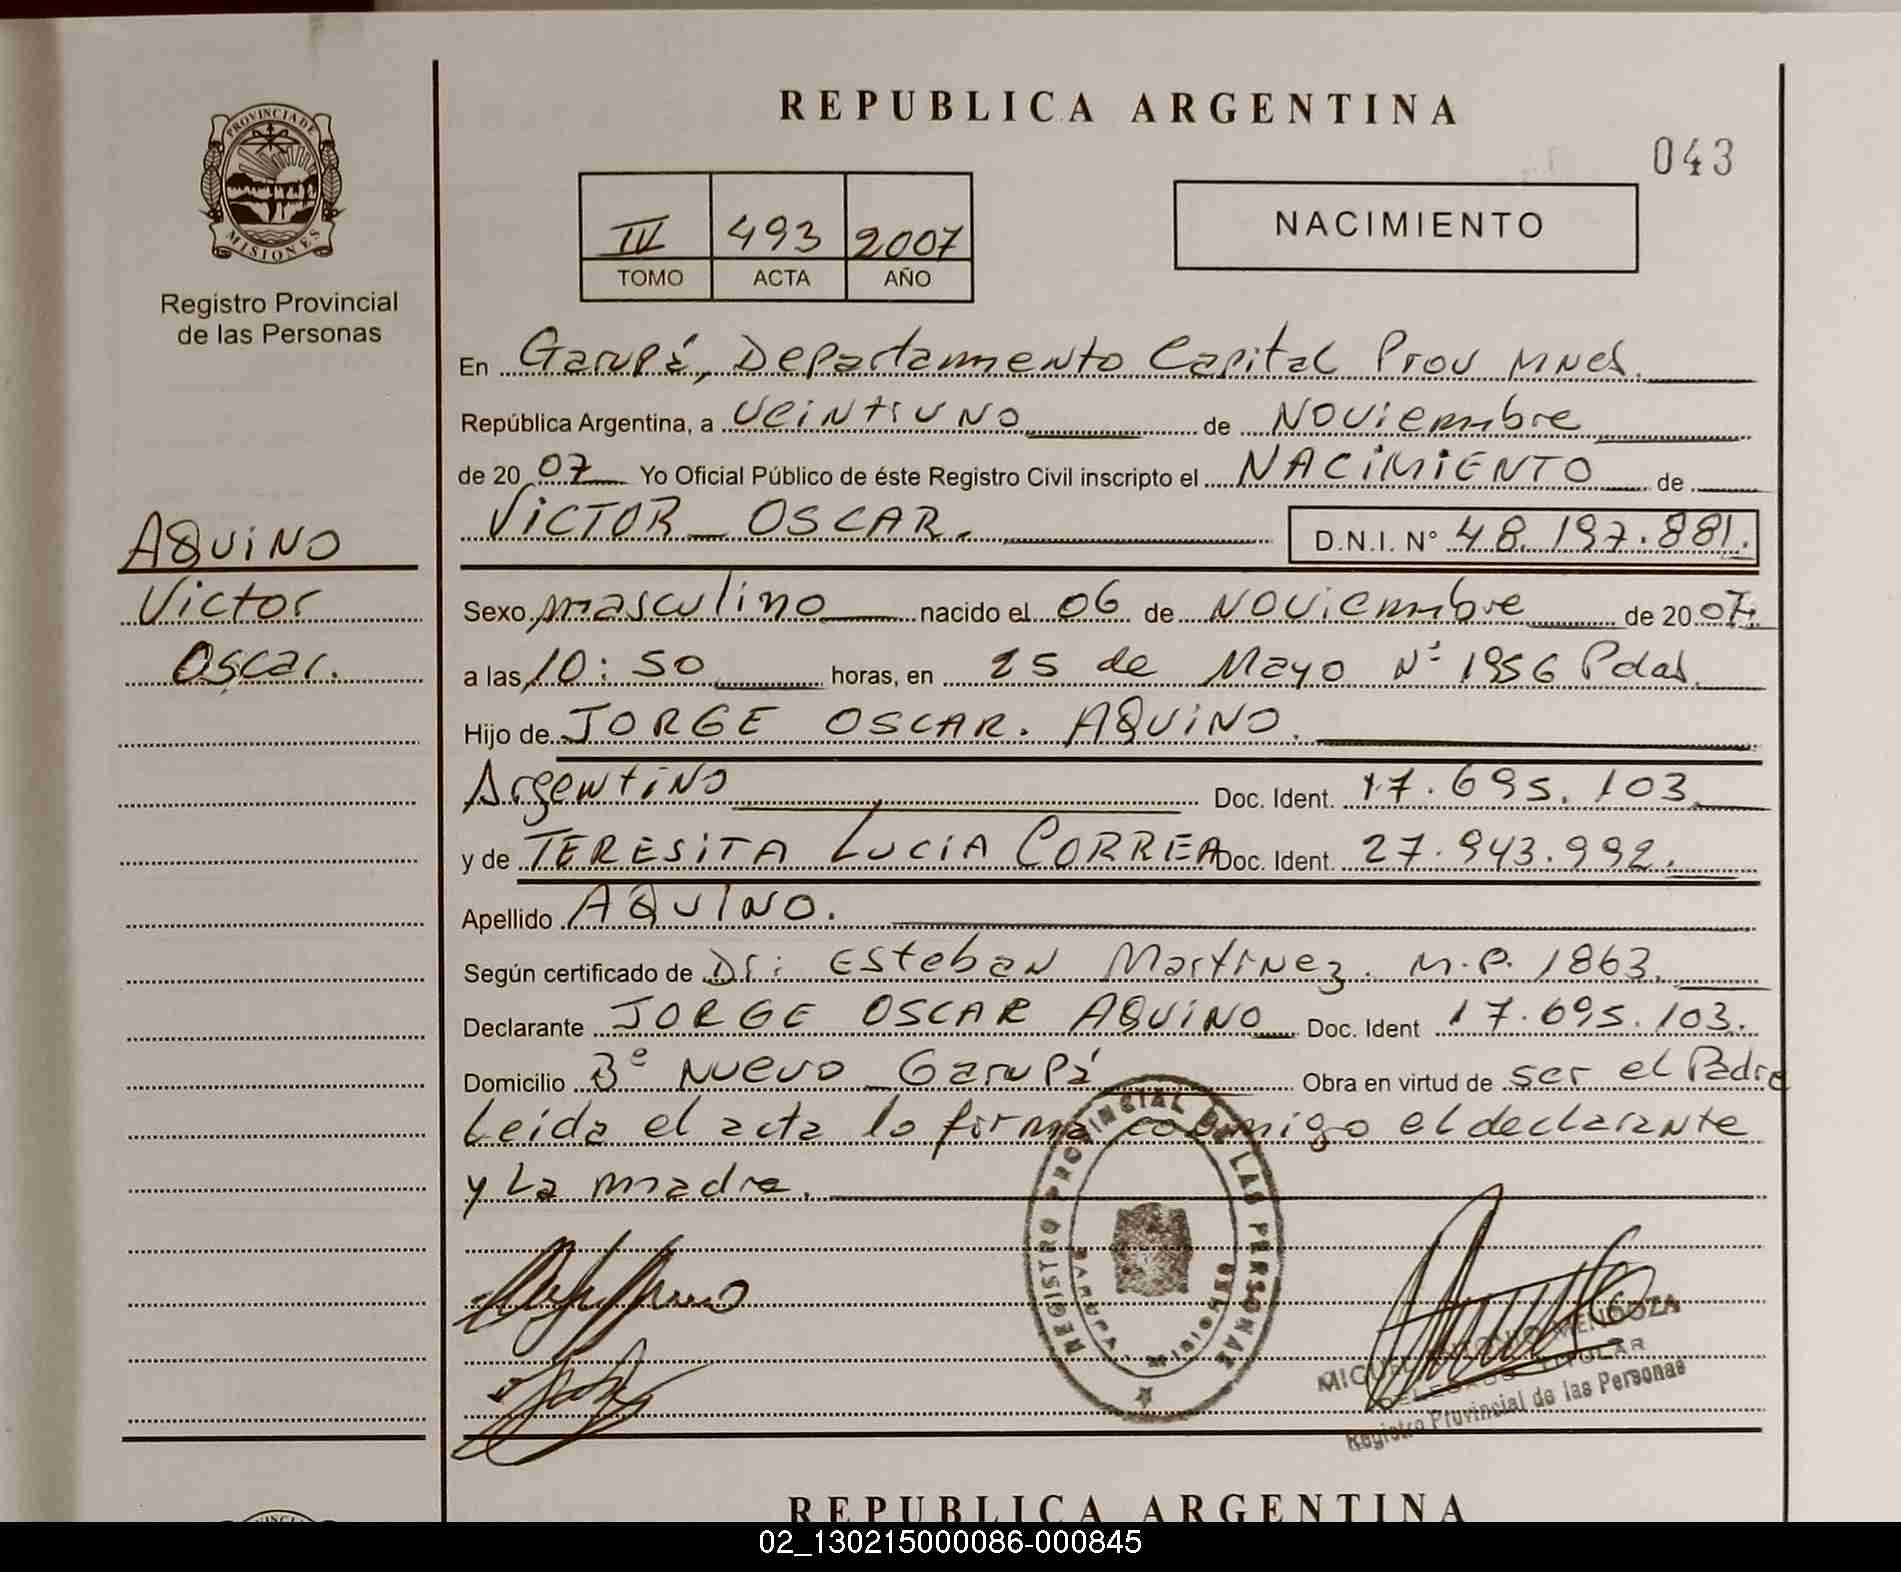 REPUBLICA ARGENTINA
043
PROVINCIA DE
MISIONES
Registro Provincial
de las Personas
IV 493 2007
TOMO ACTA AÑO
NACIMIENTO
En Garupá, Departamento Capital Prov Mnes.
República Argentina, a veintiuno de Noviembre
de 2007 Yo Oficial Público de éste Registro Civil inscripto el NACIMIENTO de
VICTOR OSCAR. D.N.I. N° 48.197.881.
AQUINO
Victor
Oscar.
Sexo masculino nacido el 06 de Noviembre de 2007.
a las 10:50 horas, en 25 de Mayo Nº 1956 Pdas.
Hijo de JORGE OSCAR. AQUINO.
Argentino Doc. Ident. 17.695.103
y de TERESITA LUCIA CORREA Doc. Ident. 27.943.992.
Apellido AQUINO.
Según certificado de Dr: Esteban Martinez. M.P. 1863.
Declarante JORGE OSCAR AQUINO Doc. Ident 17.695.103.
Domicilio Bº Nuevo Garupá Obra en virtud de ser el Padre
Leida el acta lo firma conmigo el declarante
y La madre.
REGISTRO PROVINCIAL DE LAS PERSONAS
GARUPA
MIGUEL ANTONIO MENDOZA
DELEGADO TITULAR
Registro Provincial de las Personas
REPUBLICA ARGENTINA
02_130215000086-000845